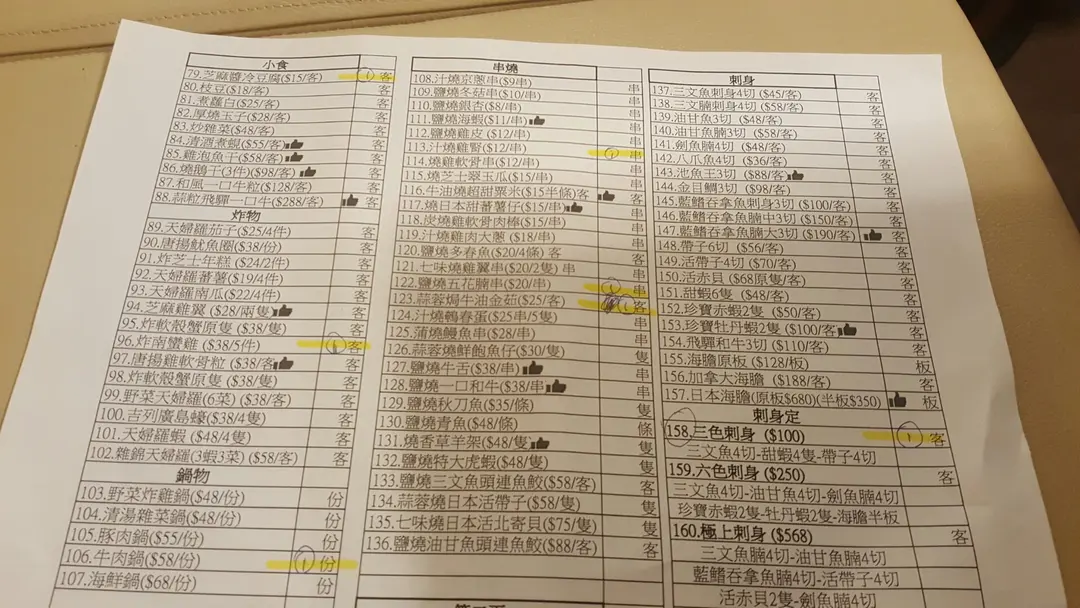 小食
79.芝麻醬冷豆腐($15/客) 1 客
80.枝豆($18/客) 客
81.煮蘿白($25/客) 客
82.厚燒玉子($28/客) 客
83.炒雜菜($48/客) 客
84.清酒煮蜆($55/客) 客
85.雞泡魚干($58/客) 客
86.燒鵝干(3件)($98/客) 客
87.和風一口牛粒($128/客) 客
88.蒜粒飛驒一口牛($288/客) 客
炸物
89.天婦羅茄子($25/4件) 客
90.唐揚魷魚圈($38/份) 客
91.炸芝士年糕($24/2件) 客
92.天婦羅蕃薯($19/4件) 客
93.天婦羅南瓜($22/4件) 客
94.芝麻雞翼($28/兩隻) 客
95.炸軟殼蟹原隻($38/隻) 客
96.炸南蠻雞($38/5件) 1 客
97.唐揚雞軟骨粒($38/客) 客
98.炸軟殼蟹原隻($38/隻) 客
99.野菜天婦羅(6菜)($38/客) 客
100.吉列廣島蠔($38/4隻) 客
101.天婦羅蝦($48/4隻) 客
102.雜錦天婦羅(3蝦3菜)($58/客) 客
鍋物
103.野菜炸雞鍋($48/份) 份
104.清湯雜菜鍋($48/份) 份
105.豚肉鍋($55/份) 份
106.牛肉鍋($58/份) 1 份
107.海鮮鍋($68/份) 份
串燒
108.汁燒京蔥串($9/串) 串
109.鹽燒冬菇串($10/串) 串
110.鹽燒銀杏($8/串) 串
111.鹽燒海蝦($11/串) 串
112.鹽燒雞皮($12/串) 串
113.汁燒雞腎($12/串) 1 串
114.燒雞軟骨串($12/串) 串
115.燒芝士翠玉瓜($15/串) 串
116.牛油燒超甜粟米($15半條)客 客
117.燒日本甜蕃薯仔($15/串) 串
118.炭燒雞軟骨肉棒($15/串) 串
119.汁燒雞肉大蔥($18/串) 串
120.鹽燒多春魚($20/4條)客 客
121.七味燒雞翼串($20/2隻)串 串
122.鹽燒五花腩串($20/串) 1 串
123.蒜蓉焗牛油金菇($25/客) 1 客
124.汁燒鵪春蛋($25串/5隻) 串
125.蒲燒鰻魚串($28/串) 串
126.蒜蓉燒鮮鮑魚仔($30/隻) 隻
127.鹽燒牛舌($38/串) 串
128.鹽燒一口和牛($38/串) 串
129.鹽燒秋刀魚($35/條) 隻
130.鹽燒青魚($48/條) 條
131.燒香草羊架($48/隻) 隻
132.鹽燒特大虎蝦($48/隻) 隻
133.鹽燒三文魚頭連魚鮫($58/客) 客
134.蒜蓉燒日本活帶子($58/隻) 隻
135.七味燒日本活北寄貝($75/隻) 隻
136.鹽燒油甘魚頭連魚鮫($88/客) 客
刺身
137.三文魚刺身4切($45/客) 客
138.三文腩刺身4切($58/客) 客
139.油甘魚3切($48/客) 客
140.油甘魚腩3切($58/客) 客
141.劍魚腩4切($48/客) 客
142.八爪魚4切($36/客) 客
143.池魚王3切($88/客) 客
144.金目鯛3切($98/客) 客
145.藍鰭吞拿魚刺身3切($100/客) 客
146.藍鰭吞拿魚腩中3切($150/客) 客
147.藍鰭吞拿魚腩大3切($190/客) 客
148.帶子6切($56/客) 客
149.活帶子4切($70/客) 客
150.活赤貝($68原隻/客) 客
151.甜蝦6隻($48/客) 客
152.珍寶赤蝦2隻($50/客) 客
153.珍寶牡丹蝦2隻($100/客) 客
154.飛驒和牛3切($110/客) 客
155.海膽原板($128/板) 板
156.加拿大海膽($188/客) 客
157.日本海膽(原板$680)(半板$350) 板
刺身定
158.三色刺身($100) 1 客
三文魚4切-甜蝦4隻-帶子4切
159.六色刺身($250) 客
三文魚4切-油甘魚4切-劍魚腩4切
珍寶赤蝦2隻-牡丹蝦2隻-海膽半板
160.極上刺身($568) 客
三文魚腩4切-油甘魚腩4切
藍鰭吞拿魚腩4切-活帶子4切
活赤貝2隻-劍魚腩4切